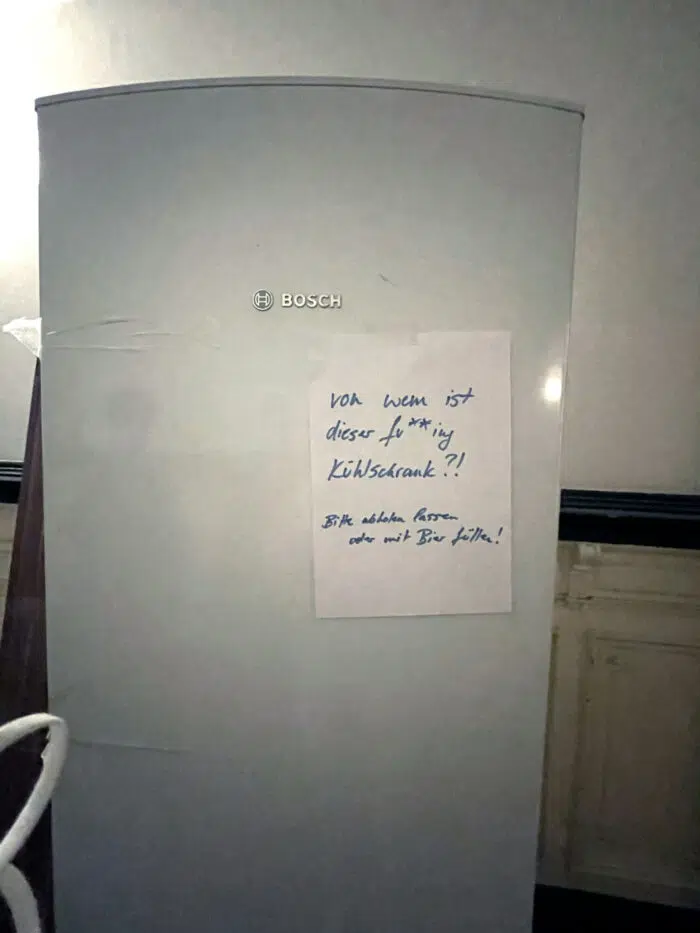 BOSCH
von wem ist
dieser fu**ing
Kühlschrank?!
Bitte abholen lassen
oder mit Bier füllen!